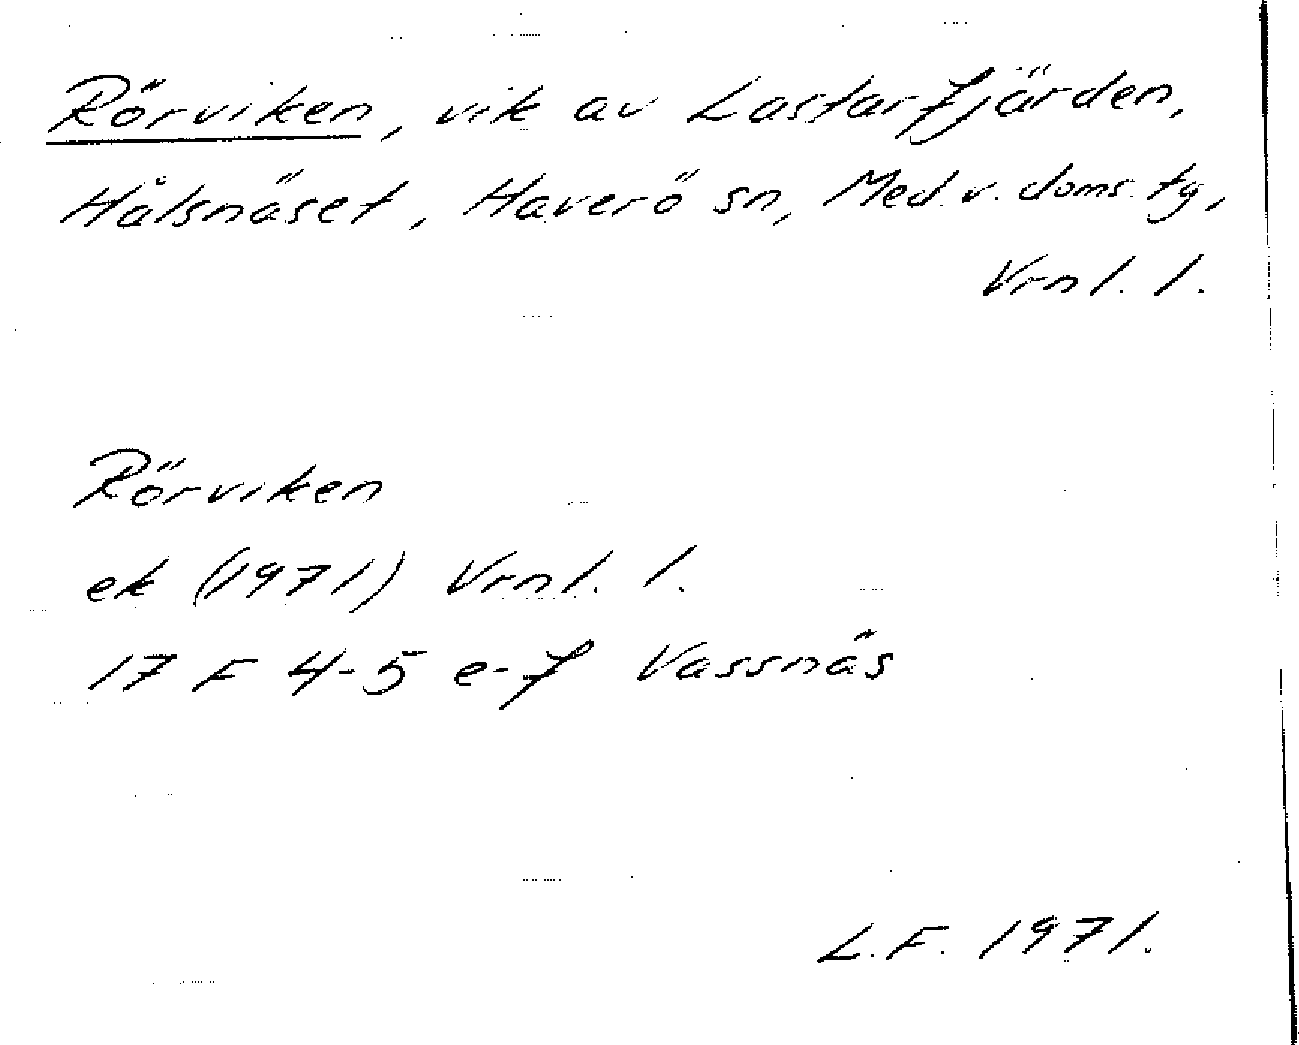 Rörviken, vik av Lastarfjärden,
Hålsnäset, Haverö sn, Med.v. doms. tg,
Vrnl. l.
Rörviken
ek (1971) Vrnl. l.
17 F 4-5 e-f Vassnäs
L.F. 1971.